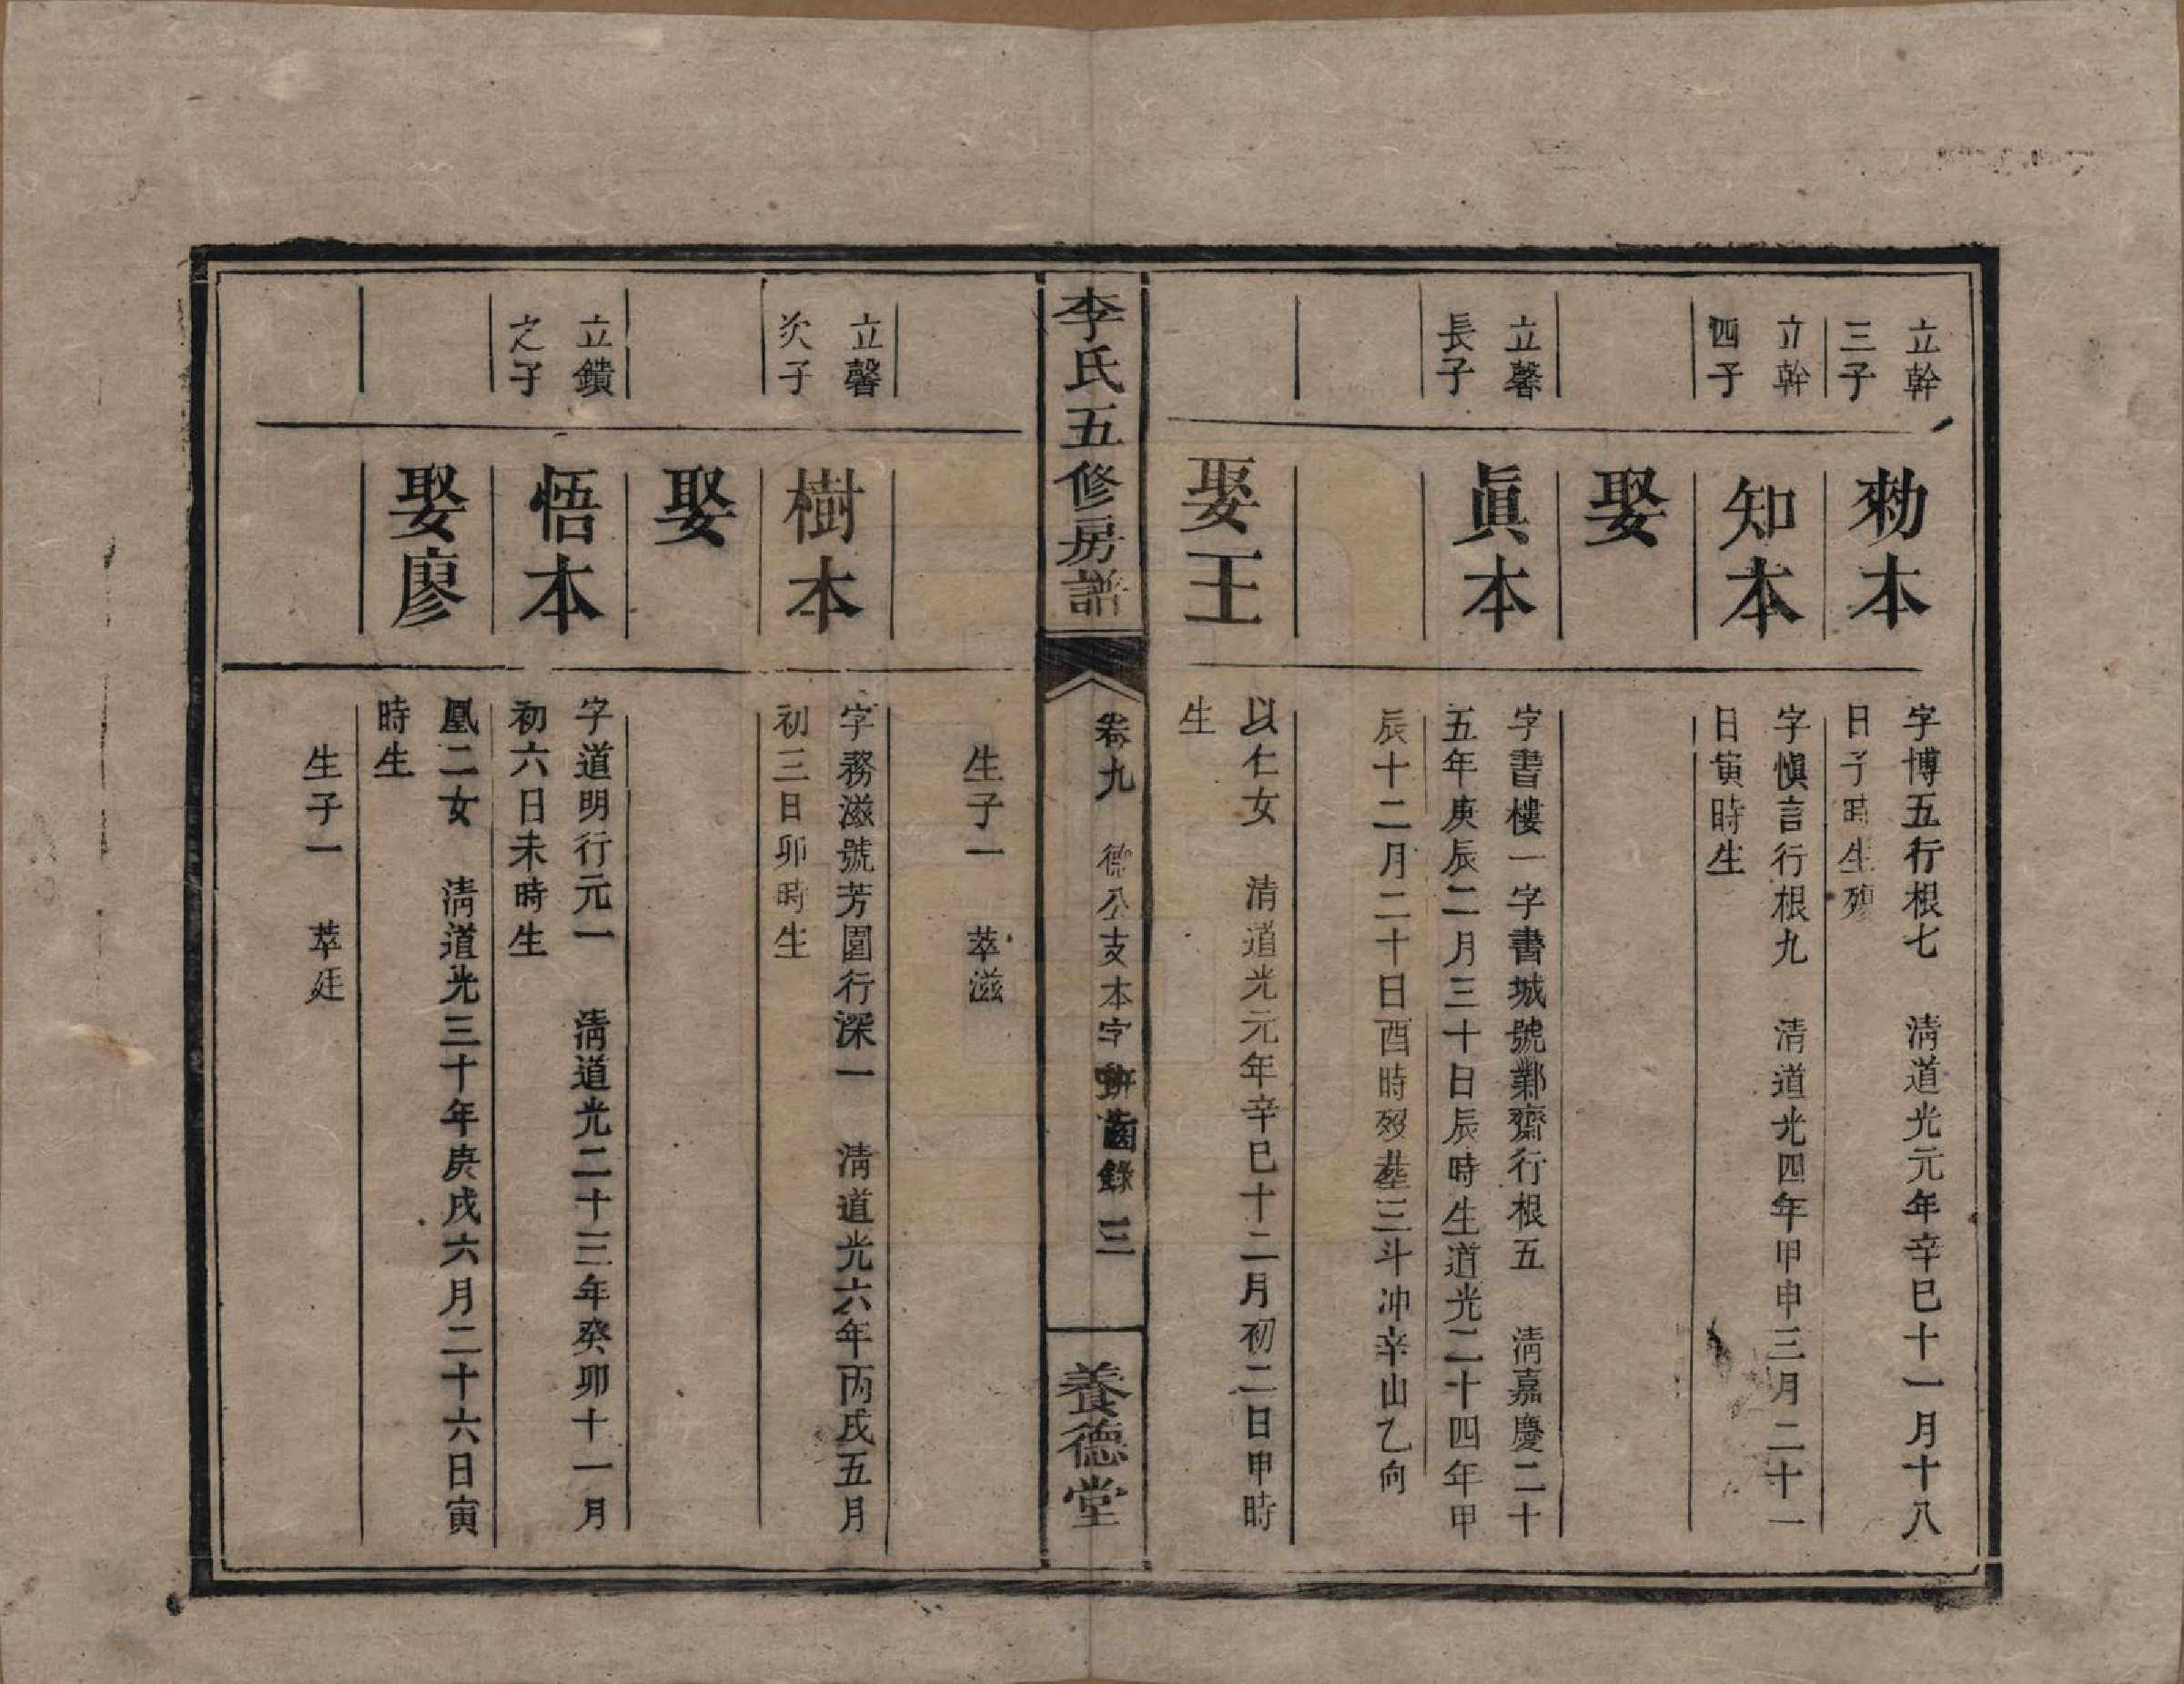 立幹
三子
勑本
字博五行根七　淸道光元年辛巳十一月十八
日子時生殤
立幹
四子
知本
字愼言行根九　淸道光四年甲申三月二十一
日寅時生
娶
立馨
長子
眞本
字書樓一字書城號鄴齋行根五　淸嘉慶二十
五年庚辰二月三十日辰時生道光二十四年甲
辰十二月二十日酉時歿塟三斗冲辛山乙向
娶王
以仁女　淸道光元年辛巳十二月初二日申時
生
李氏五修房譜
卷九　德公支本字　齒錄　三
養德堂
生子一　萃滋
立馨
次子
樹本
字務滋號芳園行深一　淸道光六年丙戌五月
初三日卯時生
娶
立鐀
之子
悟本
字道明行元一　淸道光二十三年癸卯十一月
初六日未時生
娶廖
凰二女　淸道光三十年庚戌六月二十六日寅
時生
生子一　萃廷